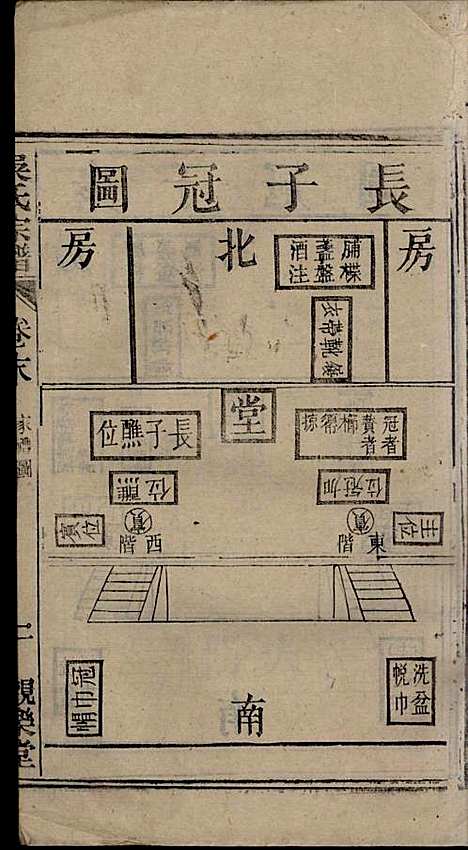 長子冠圖
房
北
房
脯楪
盞盤
酒注
堂
冠者
賛者
櫛
掠
長子醮位
加冠位
醮位
賓
賓
東階
西階
主位
賓位
洗盆
帨巾
南
冠巾帽
吳氏宗譜
卷之末
家禮圖
一
親樂堂